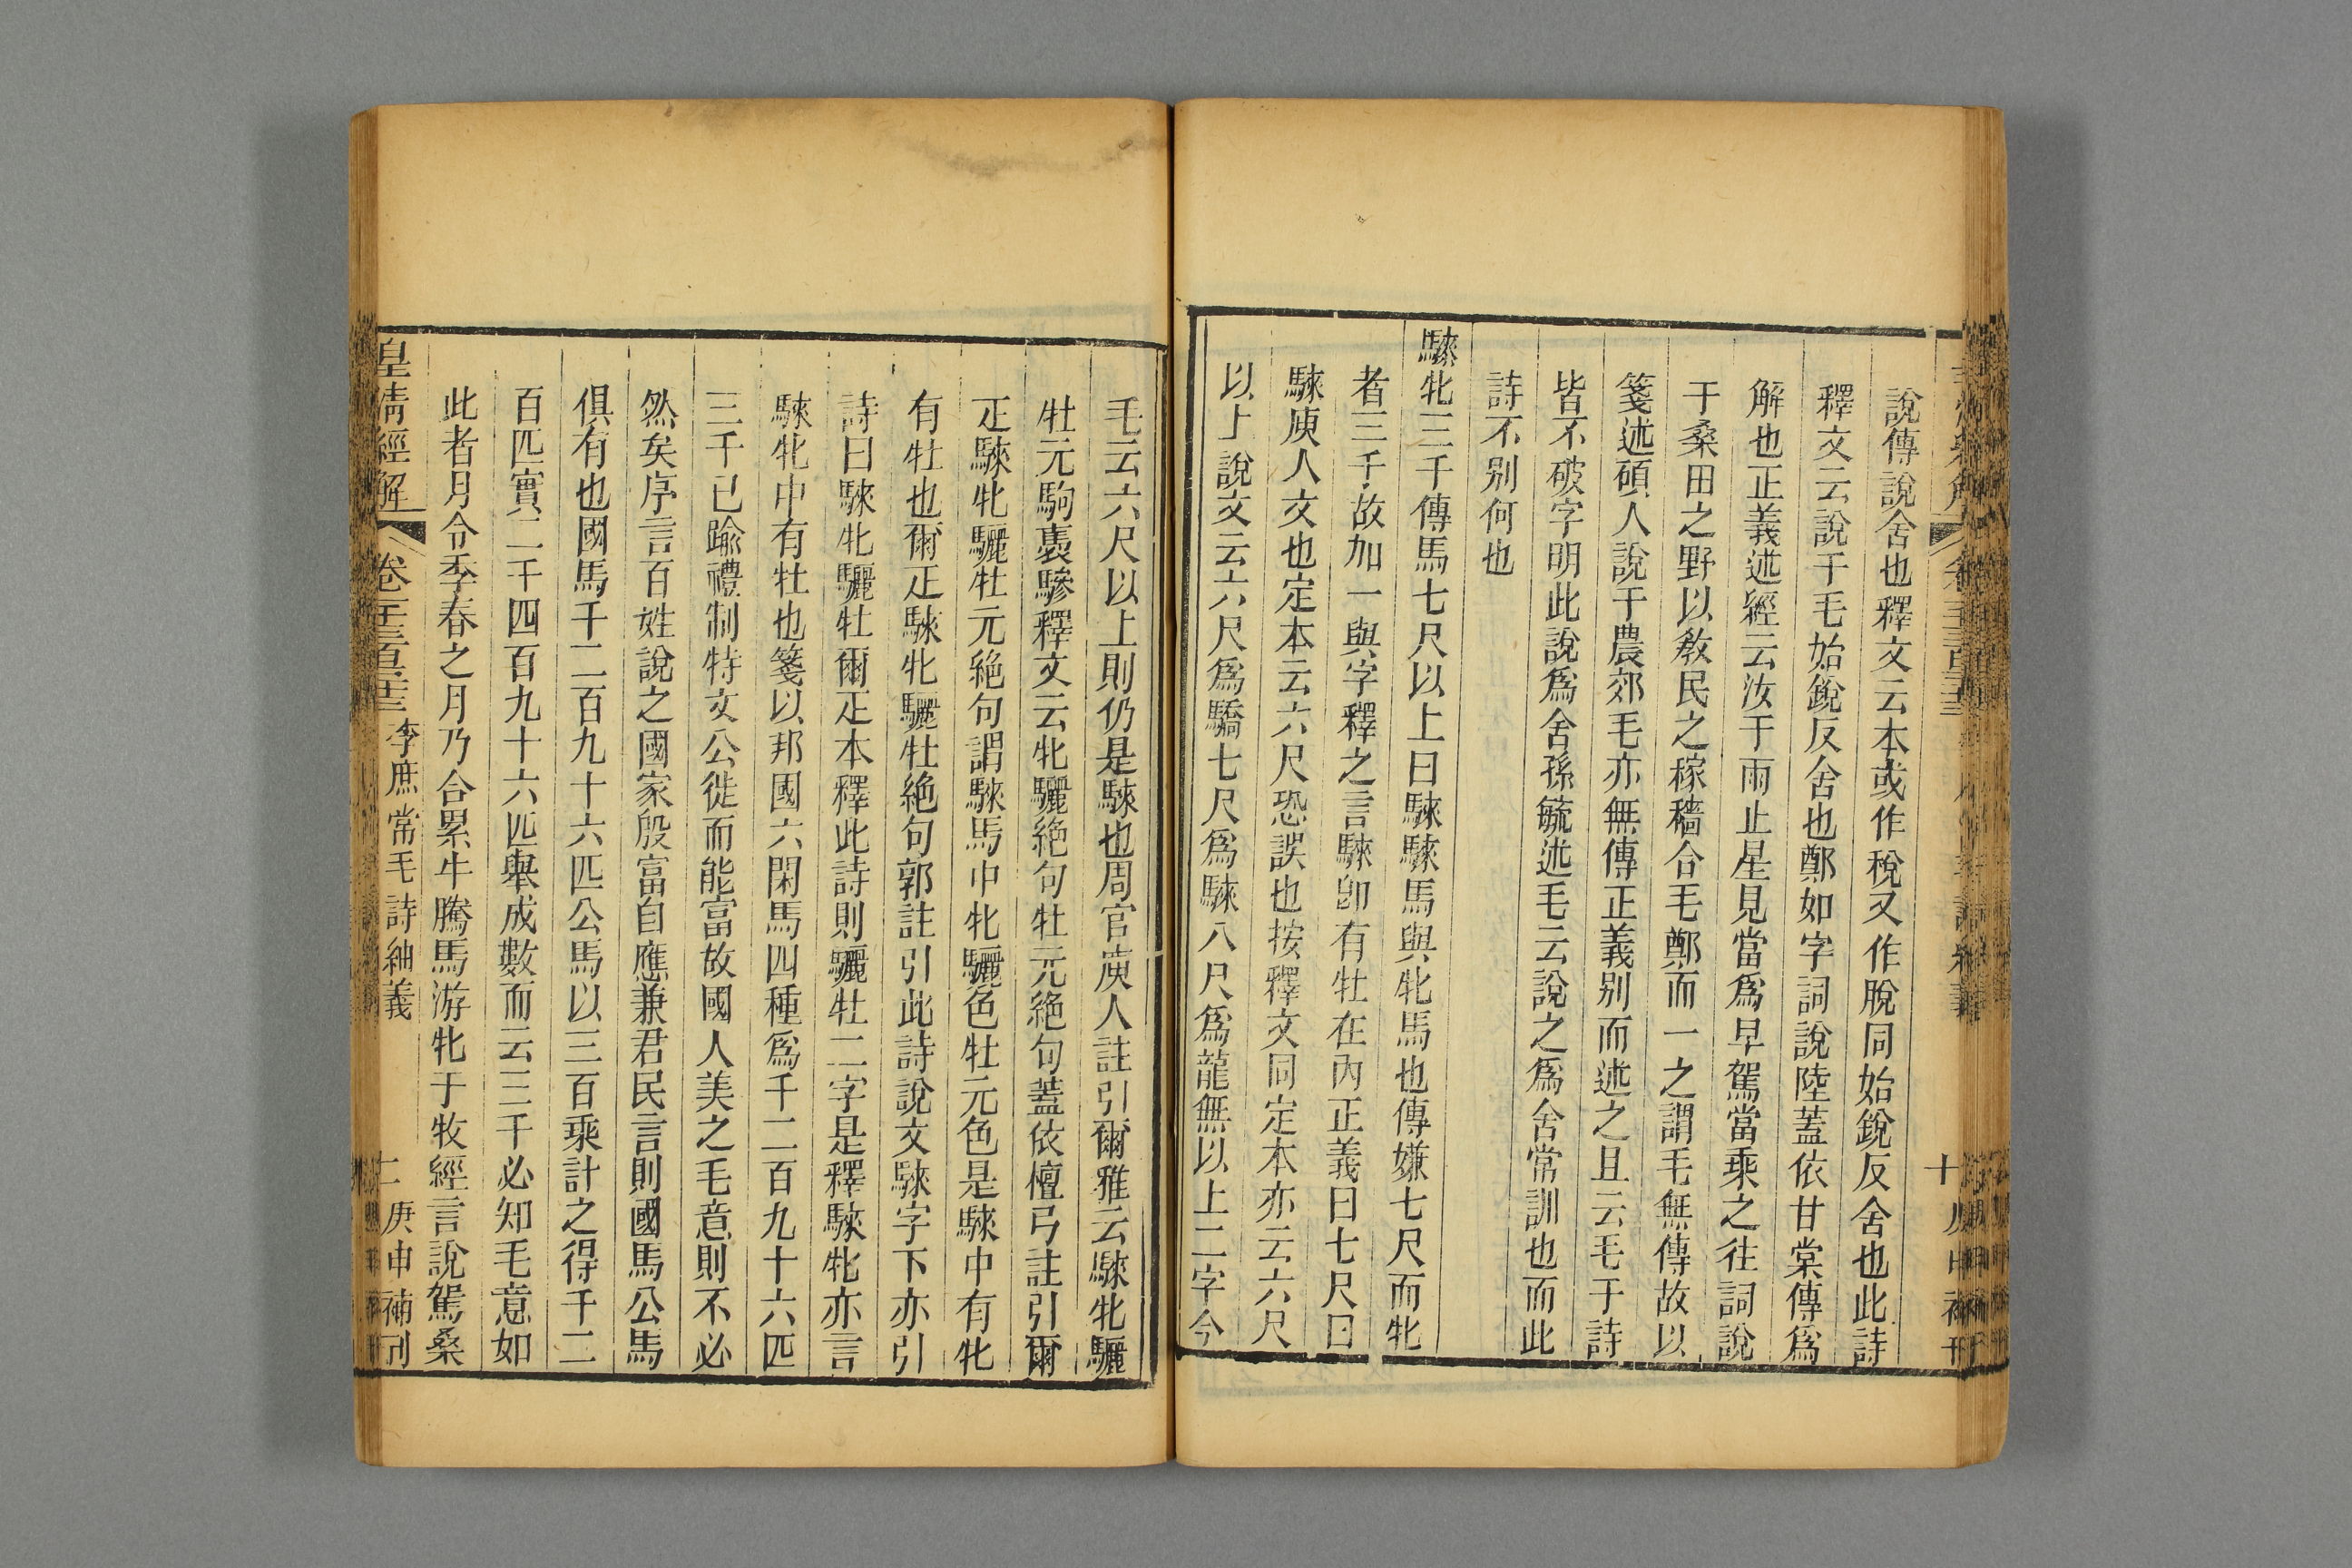 說傳說舍也釋文云本或作稅又作脫同始銳反舍也此詩
釋文云說于毛始銳反舍也鄭如字詞說陸蓋依甘棠傳爲
解也正義述經云汝于雨止星見當爲早駕當乘之往詞說
于桑田之野以敎民之稼穡合毛鄭而一之謂毛無傳故以
箋述碩人說于農郊毛亦無傳正義别而述之且云毛于詩
皆不破字明此說爲舍孫毓述毛云說之爲舍常訓也而此
詩不别何也
騋牝三千傳馬七尺以上曰騋騋馬與牝馬也傳嫌七尺而牝
者三千故加一與字釋之言騋卽有牡在內正義曰七尺曰
騋庾人文也定本云六尺恐誤也按釋文同定本亦云六尺
以上說文云六尺爲驕七尺爲騋八尺爲龍無以上二字今
毛云六尺以上則仍是騋也周官庾人註引爾雅云騋牝驪
牡元駒褭驂釋文云牝驪絶句牡元絶句蓋依檀弓註引爾
疋騋牝驪牡元絶句謂騋馬中牝驪色牡元色是騋中有牝
有牡也爾疋騋牝驪牡絶句郭註引此詩說文騋字下亦引
詩曰騋牝驪牡爾疋本釋此詩則驪牡二字是釋騋牝亦言
騋牝中有牡也箋以邦國六閑馬四種爲千二百九十六匹
三千已踰禮制特文公徙而能富故國人美之毛意則不必
然矣序言百姓說之國家殷富自應兼君民言則國馬公馬
俱有也國馬千二百九十六匹公馬以三百乘計之得千二
百匹實二千四百九十六匹舉成數而云三千必知毛意如
此者月令季春之月乃合累牛騰馬游牝于牧經言說駕桑
皇清經解 卷一千三百三十三 李庶常毛詩紬義 二 庚申補刊